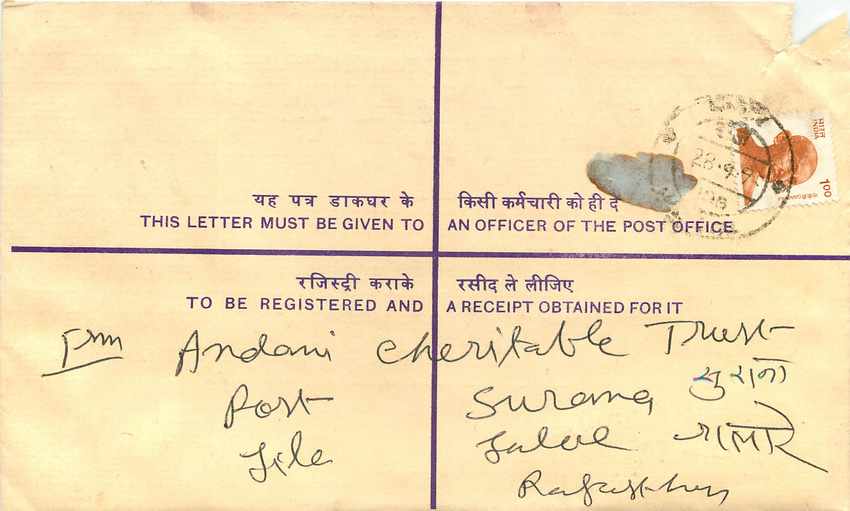 भारत
INDIA
1.00
28.9.9
यह पत्र डाकघर के किसी कर्मचारी को ही दें
THIS LETTER MUST BE GIVEN TO AN OFFICER OF THE POST OFFICE
रजिस्ट्री कराके रसीद ले लीजिए
TO BE REGISTERED AND A RECEIPT OBTAINED FOR IT
From Andani Cheritable Trust
Post Surana सुराना
Jile Jalore जालोर
Rajasthan